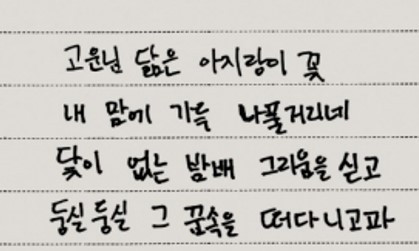 고운님 닮은 아지랑이 꽃
내 맘에 가득 나풀거리네
닻이 없는 밤배 그리움을 싣고
둥실둥실 그 꿈속을 떠다니고파